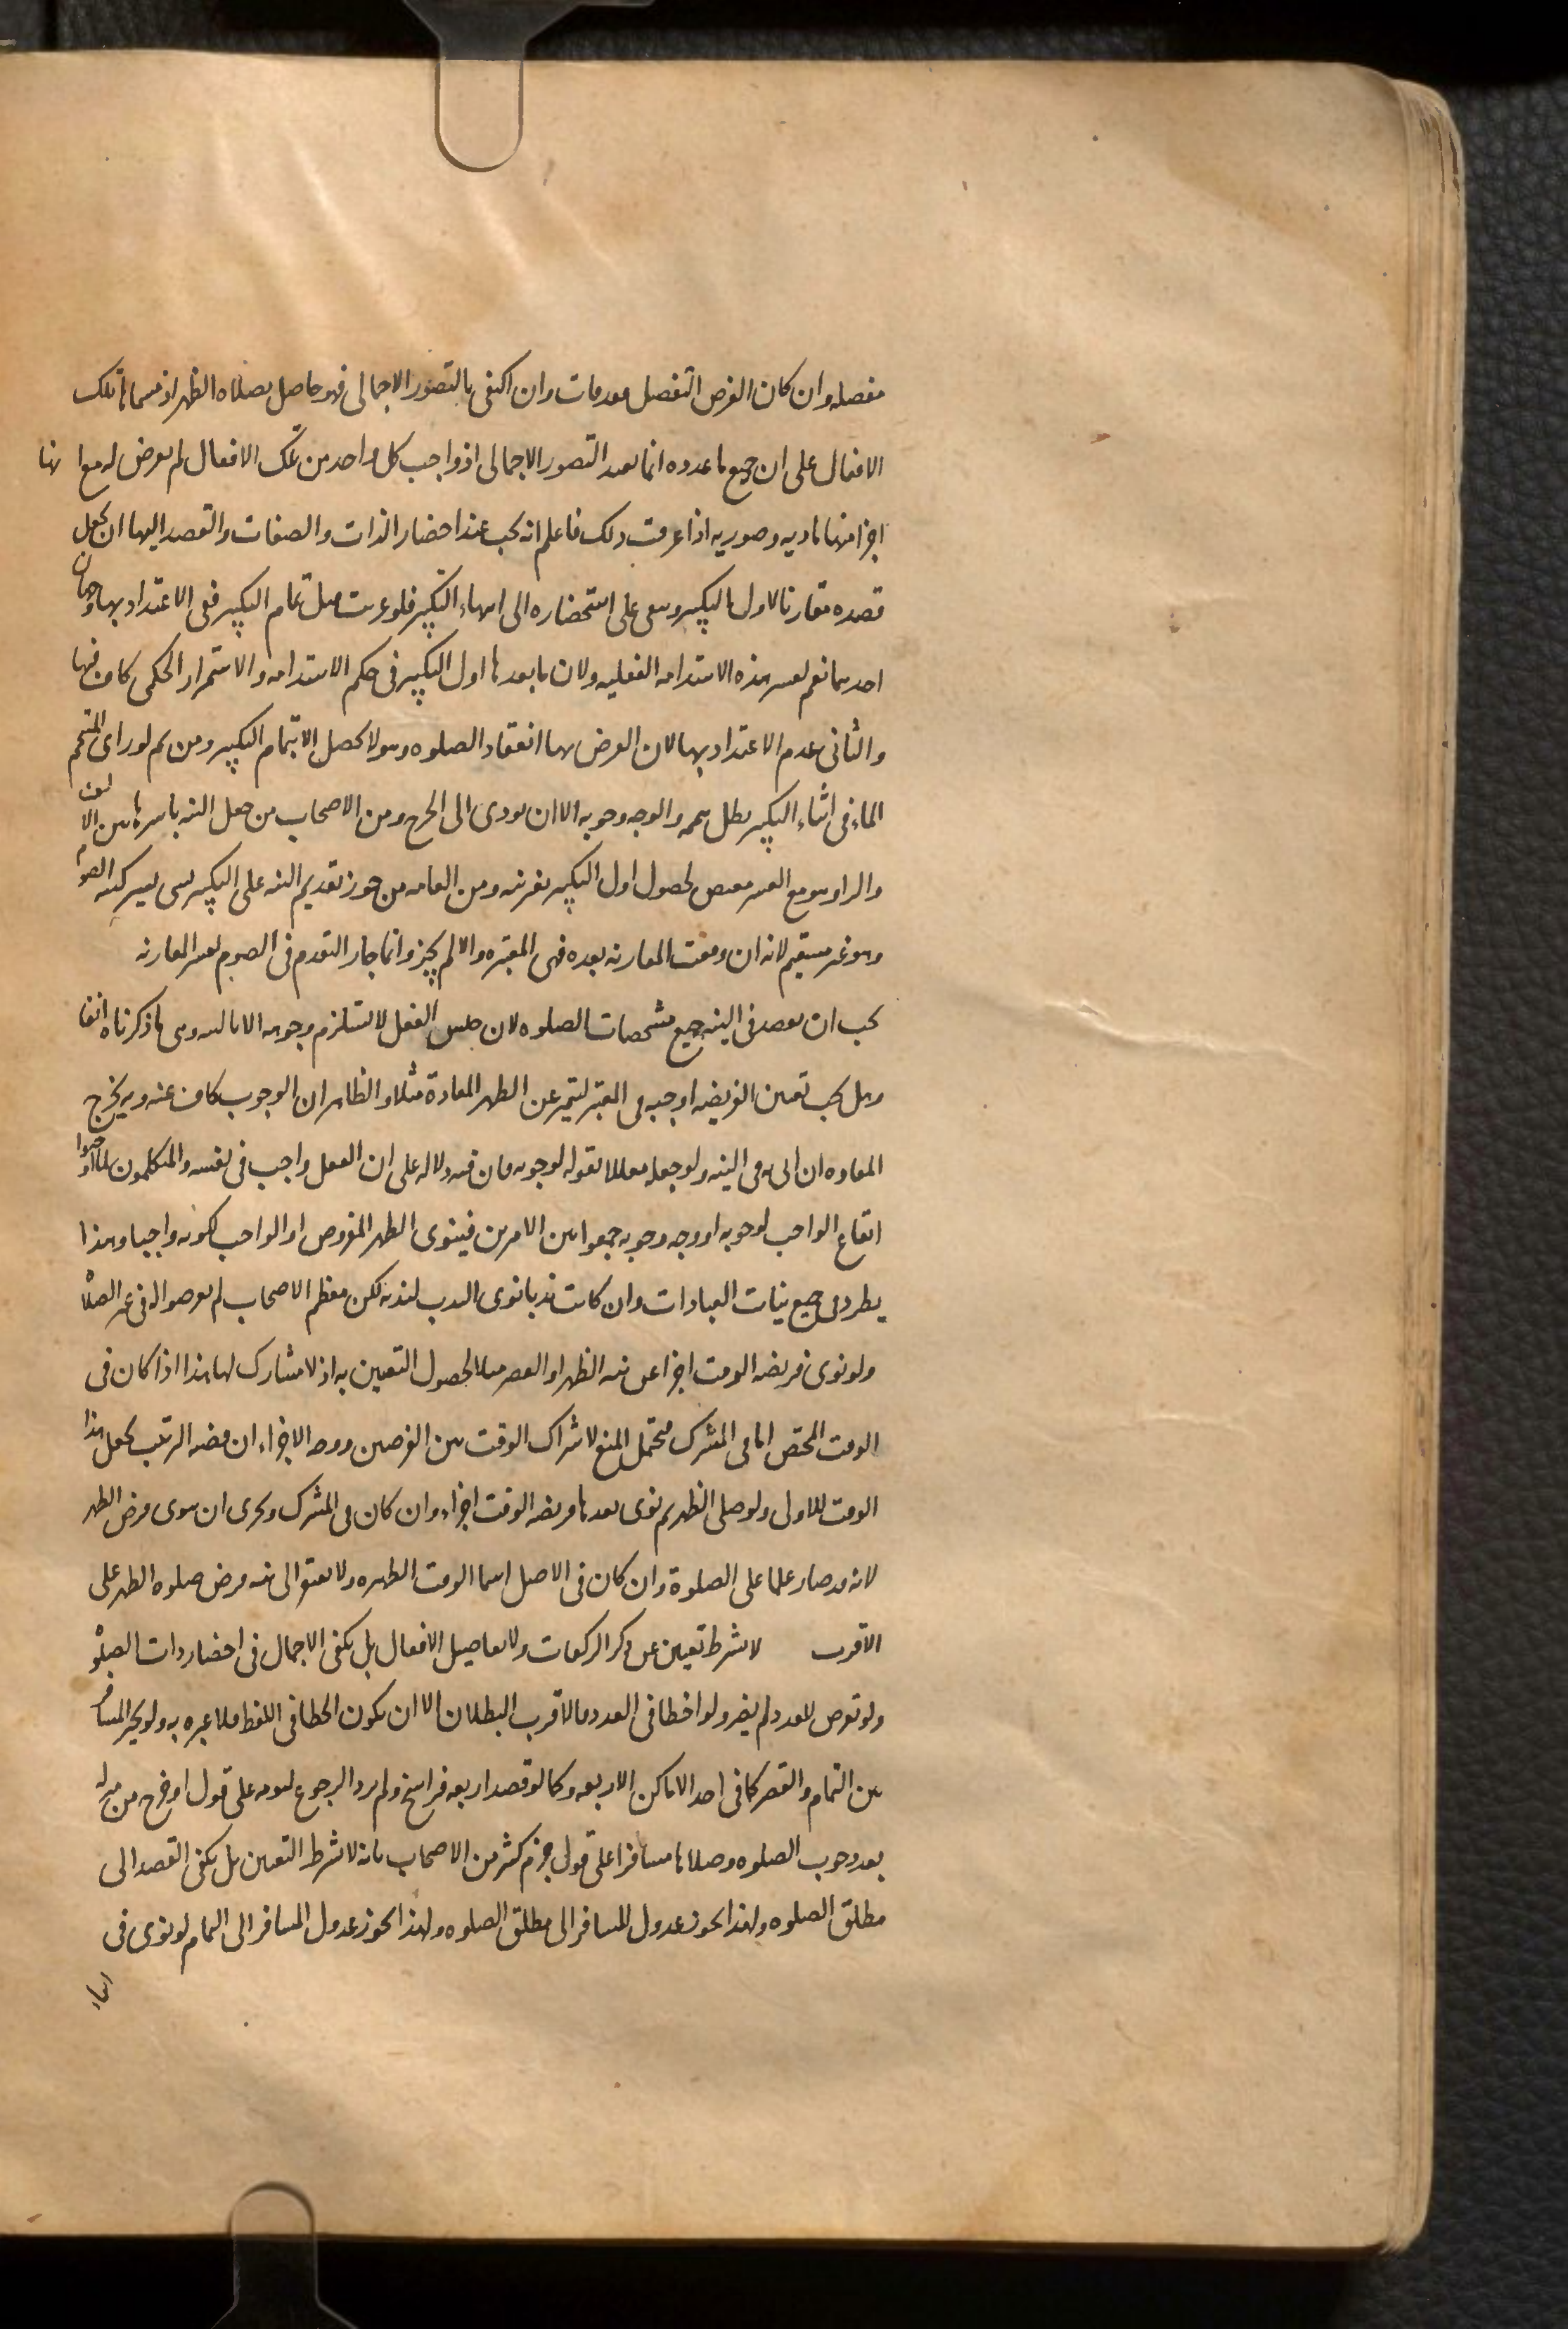 مفصله وان كان الغرض التفصيل معدمات وان اكتفى بالتصور الاجمالى فهو حاصل بصلاه الظهر اذ مسماها تلك
الافعال على ان جميع ما عدده انما يفيد التصور الاجمالى اذ واجب كل واحد من تلك الافعال لم يعرض له مع انها
اجزا منها ماديه وصوريه اذا عرفت ذلك فاعلم انه يجب عند احضار الذات والصفات والقصد اليها ان يجعل
قصده مقارنا لاول التكبير ويبقى على استحضاره الى انتهاء التكبير فلو عزبت قبل تمام التكبير ففى الاعتداد بها وجهان
احدهما نعم لعسر هذه الاستدامه الفعليه ولان ما بعد اول التكبير فى حكم الاستدامه والاستمرار الحكمى كاف فيها
والثانى عدم الاعتداد بها لان الغرض بها انعقاد الصلوه وهو لا يحصل الا بتمام التكبير ومن ثم لو راى المتيمم
الماء فى اثناء التكبير بطل تيممه والوجه وجوبه الا ان يودى الى الحرج ومن الاصحاب من جعل النيه باسرها بين الالف
والرا وهو مع العسر مقتض لحصول اول التكبير بغير نيه ومن العامه من جوز تقديم النيه على التكبير بشى يسير كنيه الصوم
وهو غير مستقيم لانه ان وقعت المقارنه بعده فهى المعتبره والا لم يجز وانما جاز التقدم فى الصوم لعسر المقارنه
يجب ان يقصد فى النيه جميع مشخصات الصلوه لان جنس الفعل لا يستلزم وجوهه الا بالنيه وهى ما ذكرناه انفا
وهل يجب تعيين الفريضه اوجبه فى المعتبر ليتميز عن الظهر المعادة مثلا والظاهر ان الوجوب كاف عنه وبه يخرج
المعاده ان اتى به فى النيه ولو جعله معللا بقوله لوجوبه فان فيه دلاله على ان الفعل واجب فى نفسه والمتكلمون لما اوجبوا
ايقاع الواجب لوجوبه او وجه وجوبه جمعوا بين الامرين فينوى الظهر المفروض او الواجب لكونه واجبا وهذا
يطرد فى جميع نيات العبادات وان كانت ندبا نوى الندب لندبه لكن معظم الاصحاب لم يعرضوا له فى غير الصلاة
ولو نوى فريضه الوقت اجزا عن نيه الظهر او العصر مثلا لحصول التعيين به اذ لا مشارك لها هذا اذا كان فى
الوقت المختص اما فى المشترك فيحتمل المنع لاشتراك الوقت بين الفرضين ووجه الاجزاء ان قضيه الترتيب يجعل هذا
الوقت للاولى ولو صلى الظهر ثم نوى بعدها فريضه الوقت اجزاء وان كان فى المشترك ويجزى ان ينوى فرض الظهر
لانه قد صار علما على الصلوة وان كان فى الاصل اسما لوقت الظهيره ولا يفتقر الى نيه فرض صلوه الظهر على
الاقرب لا يشترط تعيين عن ذكر الركعات ولا تفاصيل الافعال بل يكفى الاجمال فى احضار ذات الصلوة
ولو تعرض للعدد لم يضر ولو اخطا فى العدد فالاقرب البطلان الا ان يكون الخطا فى اللفظ فلا عبره به ولو تخير المسافر
بين التمام والقصر كما فى احد الاماكن الاربعه وكما لو قصد اربعه فراسخ ولم يرد الرجوع ليومه على قول او خرج من منزله
بعد وجوب الصلوه وصلاها مسافرا على قول جزم كثير من الاصحاب بانه لا يشترط التعيين بل يكفى القصد الى
مطلق الصلوه ولهذا يجوز عدول المسافر الى مطلق الصلوه ولهذا يجوز عدول المسافر الى التمام لو نوى فى
اثناء